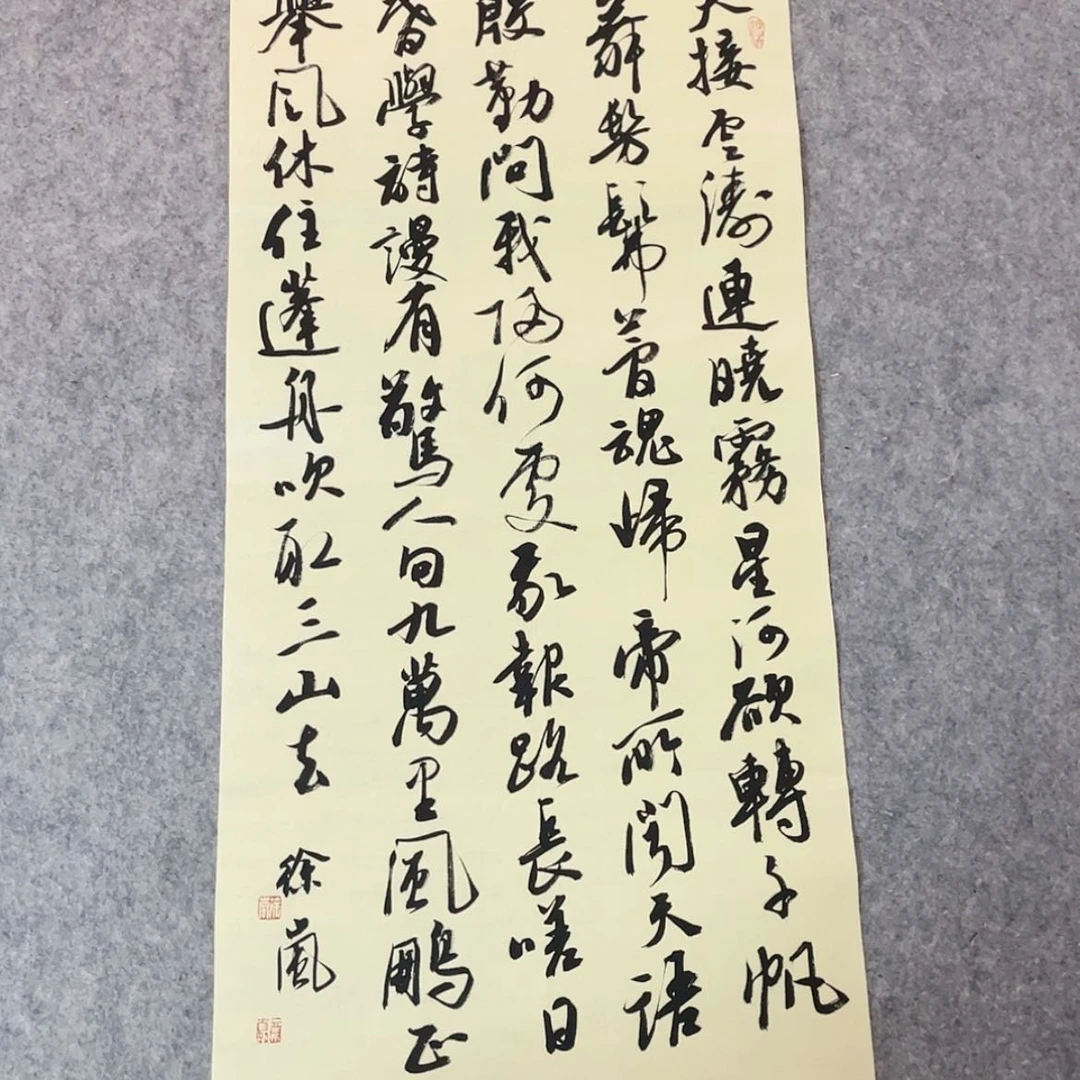 天接雲濤連曉霧星河欲轉千帆
舞髣髴夢魂歸帝所聞天語
殷勤問我歸何處我報路長嗟日
暮學詩謾有驚人句九萬里風鵬正
舉風休住蓬舟吹取三山去
徐嵐